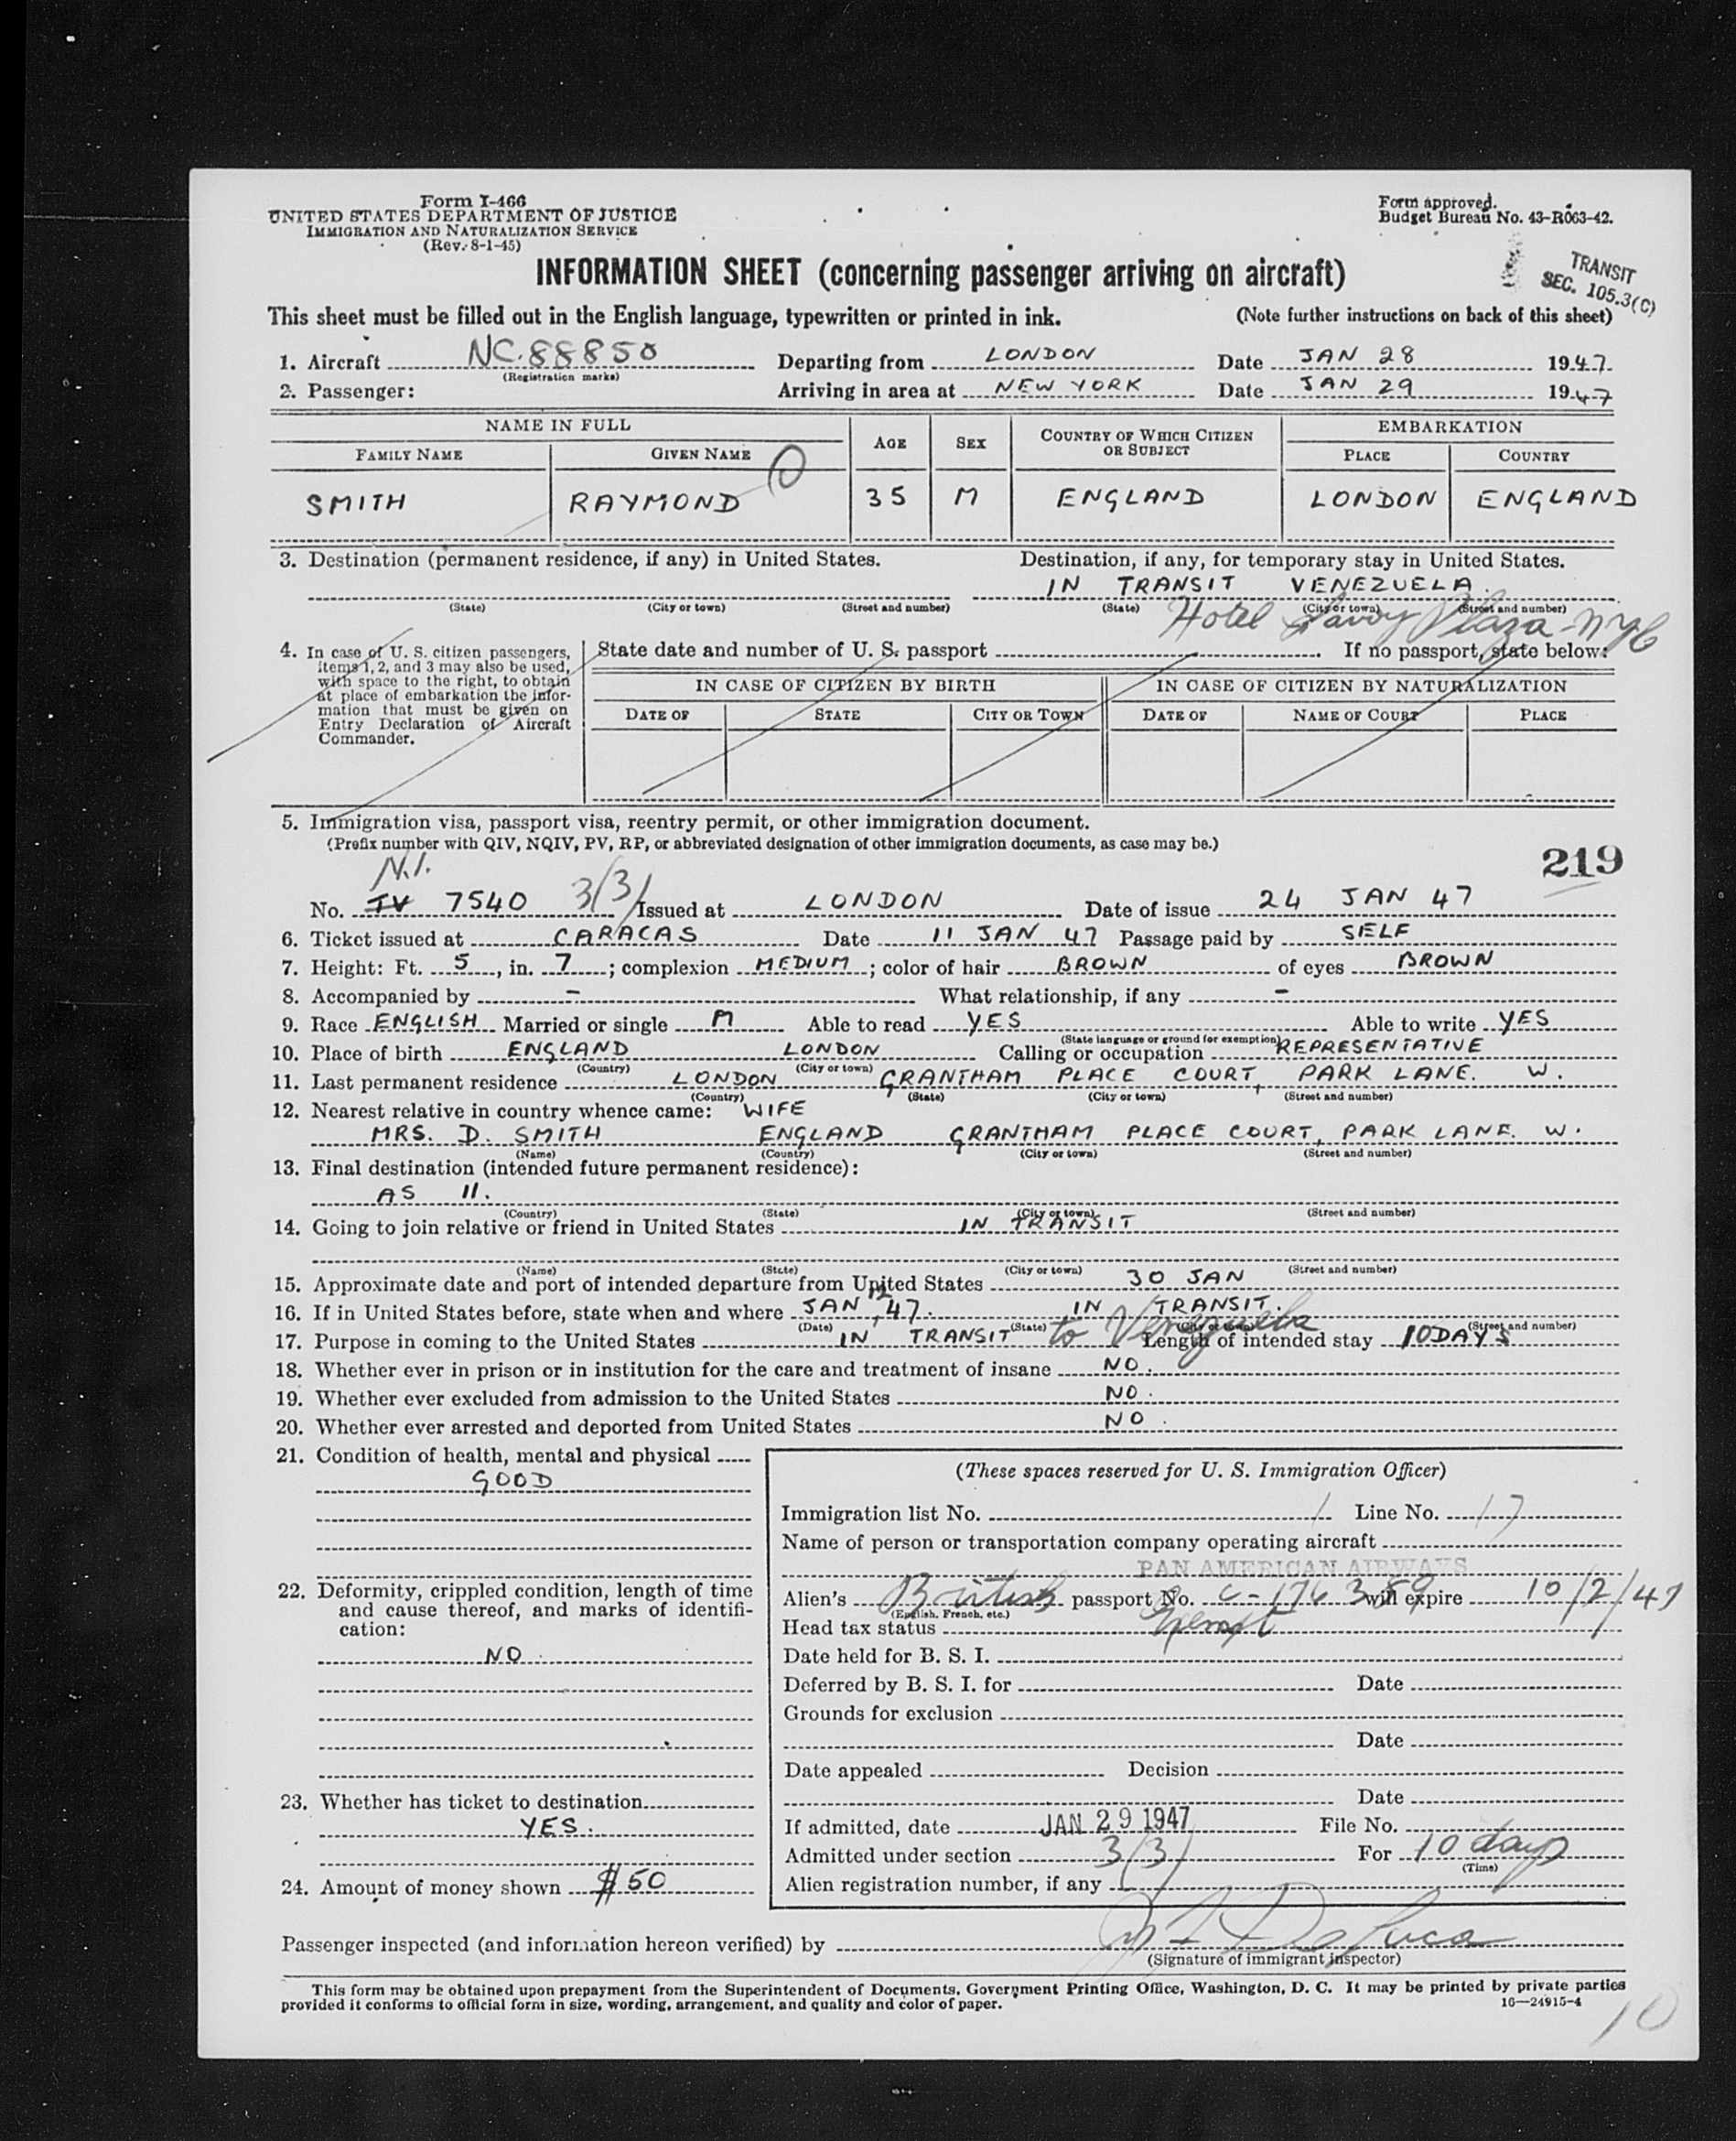 Form I-466
UNITED STATES DEPARTMENT OF JUSTICE
IMMIGRATION AND NATURALIZATION SERVICE
(Rev. 8-1-45)
Form approved.
Budget Bureau No. 43-R063-42.
TRANSIT
SEC. 105.3(C)
INFORMATION SHEET (concerning passenger arriving on aircraft)
This sheet must be filled out in the English language, typewritten or printed in ink. (Note further instructions on back of this sheet)
1. Aircraft NC.88850 Departing from LONDON Date JAN 28 1947
(Registration marks)
2. Passenger: Arriving in area at NEW YORK Date JAN 29 1947
NAME IN FULL AGE SEX COUNTRY OF WHICH CITIZEN OR SUBJECT EMBARKATION
FAMILY NAME GIVEN NAME PLACE COUNTRY
SMITH RAYMOND 35 M ENGLAND LONDON ENGLAND
3. Destination (permanent residence, if any) in United States. Destination, if any, for temporary stay in United States.
IN TRANSIT VENEZUELA
(State) (City or town) (Street and number) (State) (City or town) (Street and number)
Hotel Savoy Plaza - NYC
4. In case of U. S. citizen passengers, items 1, 2, and 3 may also be used, with space to the right, to obtain at place of embarkation the information that must be given on Entry Declaration of Aircraft Commander.
State date and number of U. S. passport . If no passport, state below:
IN CASE OF CITIZEN BY BIRTH IN CASE OF CITIZEN BY NATURALIZATION
DATE OF STATE CITY OR TOWN DATE OF NAME OF COURT PLACE
5. Immigration visa, passport visa, reentry permit, or other immigration document.
(Prefix number with QIV, NQIV, PV, RP, or abbreviated designation of other immigration documents, as case may be.)
219
N.I.
No. IV 7540 3(3) Issued at LONDON Date of issue 24 JAN 47
6. Ticket issued at CARACAS Date 11 JAN 47 Passage paid by SELF
7. Height: Ft. 5, in. 7; complexion MEDIUM; color of hair BROWN of eyes BROWN
8. Accompanied by - What relationship, if any -
9. Race ENGLISH Married or single M Able to read YES Able to write YES
(State language or ground for exemption)
10. Place of birth ENGLAND LONDON Calling or occupation REPRESENTATIVE
(Country) (City or town)
11. Last permanent residence LONDON GRANTHAM PLACE COURT, PARK LANE. W.
(Country) (State) (City or town) (Street and number)
12. Nearest relative in country whence came: WIFE
MRS. D. SMITH ENGLAND GRANTHAM PLACE COURT, PARK LANE. W.
(Name) (Country) (City or town) (Street and number)
13. Final destination (intended future permanent residence):
AS 11.
(Country) (State) (City or town) (Street and number)
14. Going to join relative or friend in United States IN TRANSIT
(Name) (State) (City or town) (Street and number)
15. Approximate date and port of intended departure from United States 30 JAN
16. If in United States before, state when and where JAN 12, 47. IN TRANSIT.
(Date) (State) (City or town) (Street and number)
17. Purpose in coming to the United States IN TRANSIT to Venezuela Length of intended stay 10 DAYS
18. Whether ever in prison or in institution for the care and treatment of insane NO.
19. Whether ever excluded from admission to the United States NO.
20. Whether ever arrested and deported from United States NO.
21. Condition of health, mental and physical
GOOD
22. Deformity, crippled condition, length of time and cause thereof, and marks of identification:
NO
23. Whether has ticket to destination
YES.
24. Amount of money shown $50
(These spaces reserved for U. S. Immigration Officer)
Immigration list No. 1 Line No. 17
Name of person or transportation company operating aircraft
PAN AMERICAN AIRWAYS
Alien's British passport No. C-176389 will expire 10/2/47
(English, French, etc.)
Head tax status Exempt
Date held for B. S. I.
Deferred by B. S. I. for Date
Grounds for exclusion
Date
Date appealed Decision
Date
If admitted, date JAN 29 1947 File No.
Admitted under section 3(3) For 10 days
(Time)
Alien registration number, if any
Passenger inspected (and information hereon verified) by De Luca
(Signature of immigrant inspector)
This form may be obtained upon prepayment from the Superintendent of Documents, Government Printing Office, Washington, D. C. It may be printed by private parties
provided it conforms to official form in size, wording, arrangement, and quality and color of paper. 16—24915-4
10